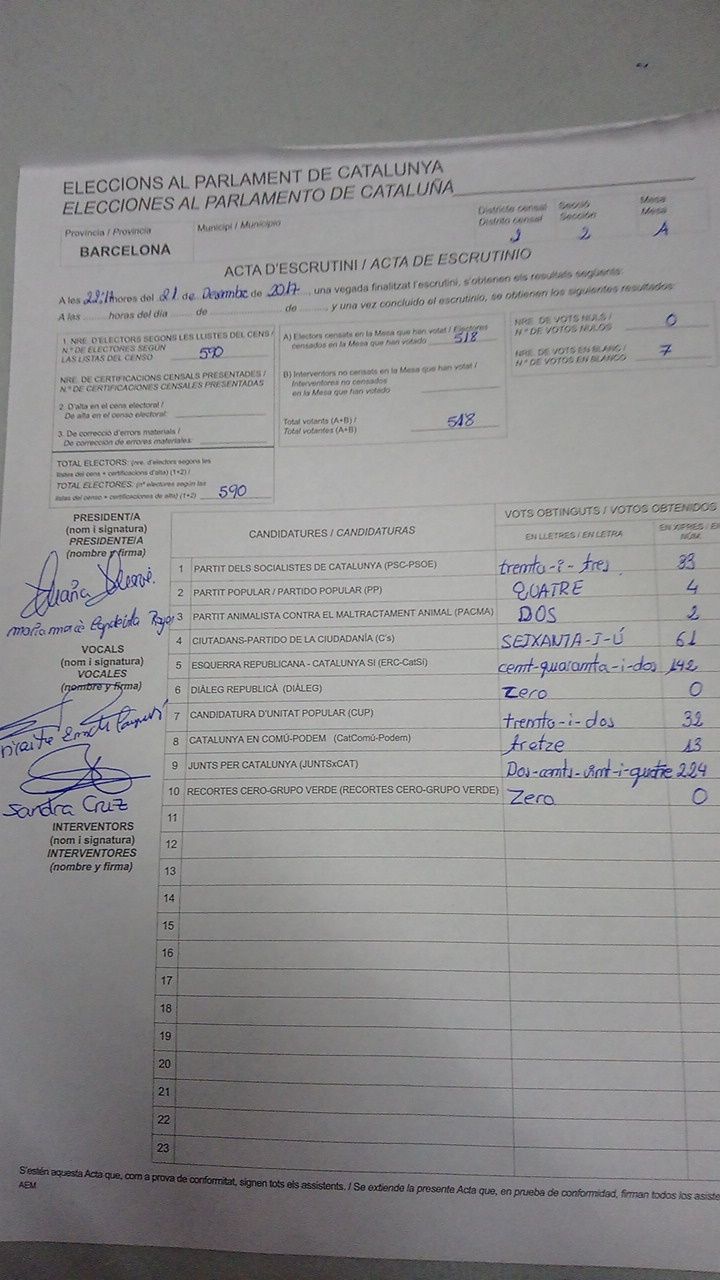 ELECCIONS AL PARLAMENT DE CATALUNYA
ELECCIONES AL PARLAMENTO DE CATALUÑA
Província / Provincia
BARCELONA
Municipi / Municipio
Districte censal
Distrito censal
Secció
Sección
2
Mesa
Mesa
A
ACTA D'ESCRUTINI / ACTA DE ESCRUTINIO
A les hores del 21 de Desembre de 2017, una vegada finalitzat l'escrutini, s'obtenen els resultats següents:
A las ........ horas del día ........ de ........ de ........ y una vez concluido el escrutinio, se obtienen los siguientes resultados:
1. NRE. D'ELECTORS SEGONS LES LLISTES DEL CENS /
N.º DE ELECTORES SEGÚN
LAS LISTAS DEL CENSO 590
NRE. DE CERTIFICACIONS CENSALS PRESENTADES /
N.º DE CERTIFICACIONES CENSALES PRESENTADAS
2. D'alta en el cens electoral /
De alta en el censo electoral:
3. De correcció d'errors materials /
De corrección de errores materiales:
TOTAL ELECTORS: (nre. d'electors segons les
llistes del cens + certificacions d'alta) (1+2) /
TOTAL ELECTORES: (nº electores según las
listas del censo + certificaciones de alta) (1+2) 590
A) Electors censats en la Mesa que han votat / Electores
censados en la Mesa que han votado 518
B) Interventors no censats en la Mesa que han votat /
Interventores no censados
en la Mesa que han votado
Total votants (A+B) /
Total votantes (A+B) 518
NRE. DE VOTS NULS /
N.º DE VOTOS NULOS 0
NRE. DE VOTS EN BLANC /
N.º DE VOTOS EN BLANCO 7
PRESIDENT/A
(nom i signatura)
PRESIDENTE/A
(nombre y firma)
VOCALS
(nom i signatura)
VOCALES
(nombre y firma)
Sandra Cruz
INTERVENTORS
(nom i signatura)
INTERVENTORES
(nombre y firma)
CANDIDATURES / CANDIDATURAS
VOTS OBTINGUTS / VOTOS OBTENIDOS
EN LLETRES / EN LETRA
EN XIFRES / EN
NÚM.
1 PARTIT DELS SOCIALISTES DE CATALUNYA (PSC-PSOE) trenta-i-tres 33
2 PARTIT POPULAR / PARTIDO POPULAR (PP) QUATRE 4
3 PARTIT ANIMALISTA CONTRA EL MALTRACTAMENT ANIMAL (PACMA) DOS 2
4 CIUTADANS-PARTIDO DE LA CIUDADANÍA (C's) SEIXANTA-I-Ú 61
5 ESQUERRA REPUBLICANA - CATALUNYA SÍ (ERC-CatSí) cent-quaranta-i-dos 142
6 DIÀLEG REPUBLICÀ (DIÀLEG) Zero 0
7 CANDIDATURA D'UNITAT POPULAR (CUP) trenta-i-dos 32
8 CATALUNYA EN COMÚ-PODEM (CatComú-Podem) tretze 13
9 JUNTS PER CATALUNYA (JUNTSxCAT) Dos-cents-vint-i-quatre 224
10 RECORTES CERO-GRUPO VERDE (RECORTES CERO-GRUPO VERDE) Zero 0
11
12
13
14
15
16
17
18
19
20
21
22
23
S'estén aquesta Acta que, com a prova de conformitat, signen tots els assistents. / Se extiende la presente Acta que, en prueba de conformidad, firman todos los asiste
AEM